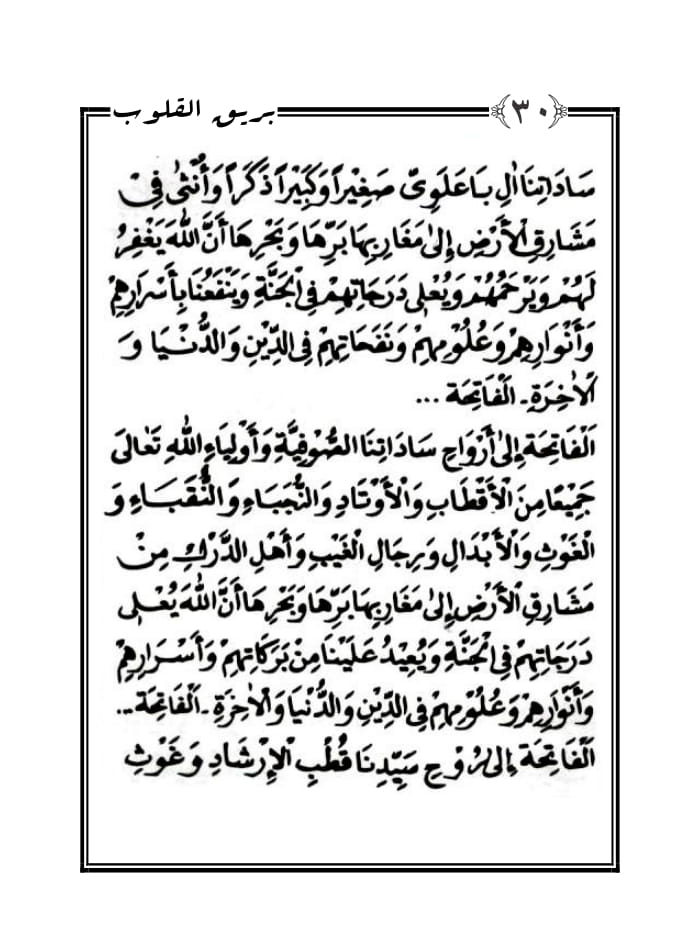 بريق القلوب ﴿٣٠﴾
سَادَاتِنَا اٰلِ بَاعَلَوِيّ صَغِيْراً وَكَبِيْراً ذَكَراً وَأُنْثٰى فِيْ
مَشَارِقِ الْأَرْضِ إِلىٰ مَغَارِبِهَا بَرِّهَا وَبَحْرِهَا أَنَّ اللهَ يَغْفِرُ
لَهُمْ وَيَرْحَمُهُمْ وَيُعْلِى دَرَجَاتِهِمْ فِى الْجَنَّةِ وَيَنْفَعُنَا بِأَسْرَارِهِمْ
وَأَنْوَارِهِمْ وَعُلُوْمِهِمْ وَنَفَحَاتِهِمْ فِى الدِّيْنِ وَالدُّنْيَا وَ
الْاٰخِرَةِ ـ الْفَاتِحَة ...
اَلْفَاتِحَة إِلىٰ أَرْوَاحِ سَادَاتِنَا الصُّوْفِيَّةِ وَأَوْلِيَاءِ اللهِ تَعَالَى
جَمِيْعًا مِنَ الْأَقْطَابِ وَالْأَوْتَادِ وَالنُّجَبَاءِ وَالنُّقَبَاءِ وَ
الْغَوْثِ وَالْأَبْدَالِ وَرِجَالِ الْغَيْبِ وَأَهْلِ الدَّرْكِ مِنْ
مَشَارِقِ الْأَرْضِ إِلىٰ مَغَارِبِهَا بَرِّهَا وَبَحْرِهَا أَنَّ اللهَ يُعْلِى
دَرَجَاتِهِمْ فِى الْجَنَّةِ وَيُعِيْدُ عَلَيْنَا مِنْ بَرَكَاتِهِمْ وَأَسْرَارِهِمْ
وَأَنْوَارِهِمْ وَعُلُوْمِهِمْ فِى الدِّيْنِ وَالدُّنْيَا وَالْاٰخِرَةِ ـ اَلْفَاتِحَة ...
اَلْفَاتِحَة إِلى رُوْحِ سَيِّدِنَا قُطْبِ الْإِرْشَادِ وَغَوْثِ